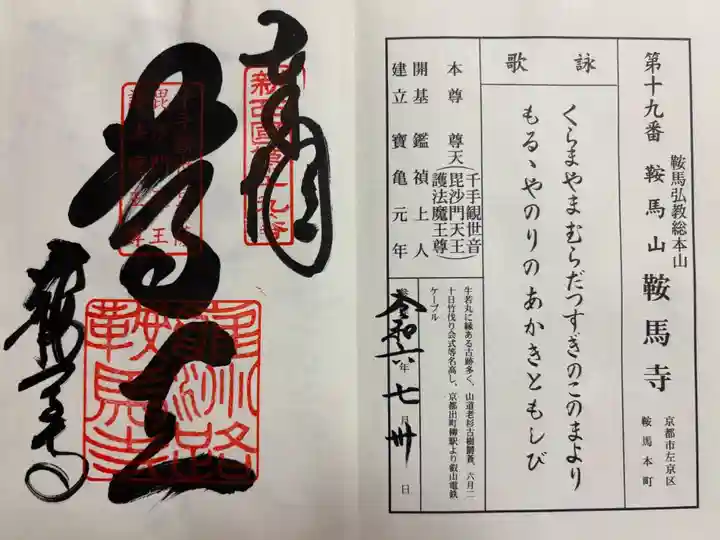 第十九番 鞍馬山 鞍馬寺
鞍馬弘教総本山
京都市左京区
鞍馬本町
詠歌
くらまやまむらだつすぎのこのまより
もるゝやのりのあかきともしび
本尊 尊天(千手観世音
毘沙門天王
護法魔王尊)
開基 鑑禎上人
建立 寶亀元年
牛若丸に縁ある古跡多く、山道老杉古樹鬱蒼、六月二
十日竹伐り会式等名高し、京都出町柳駅より叡山電鉄
ケーブル
令和六年七月卅日
奉拝
尊天
鞍馬寺
新西国第十九番